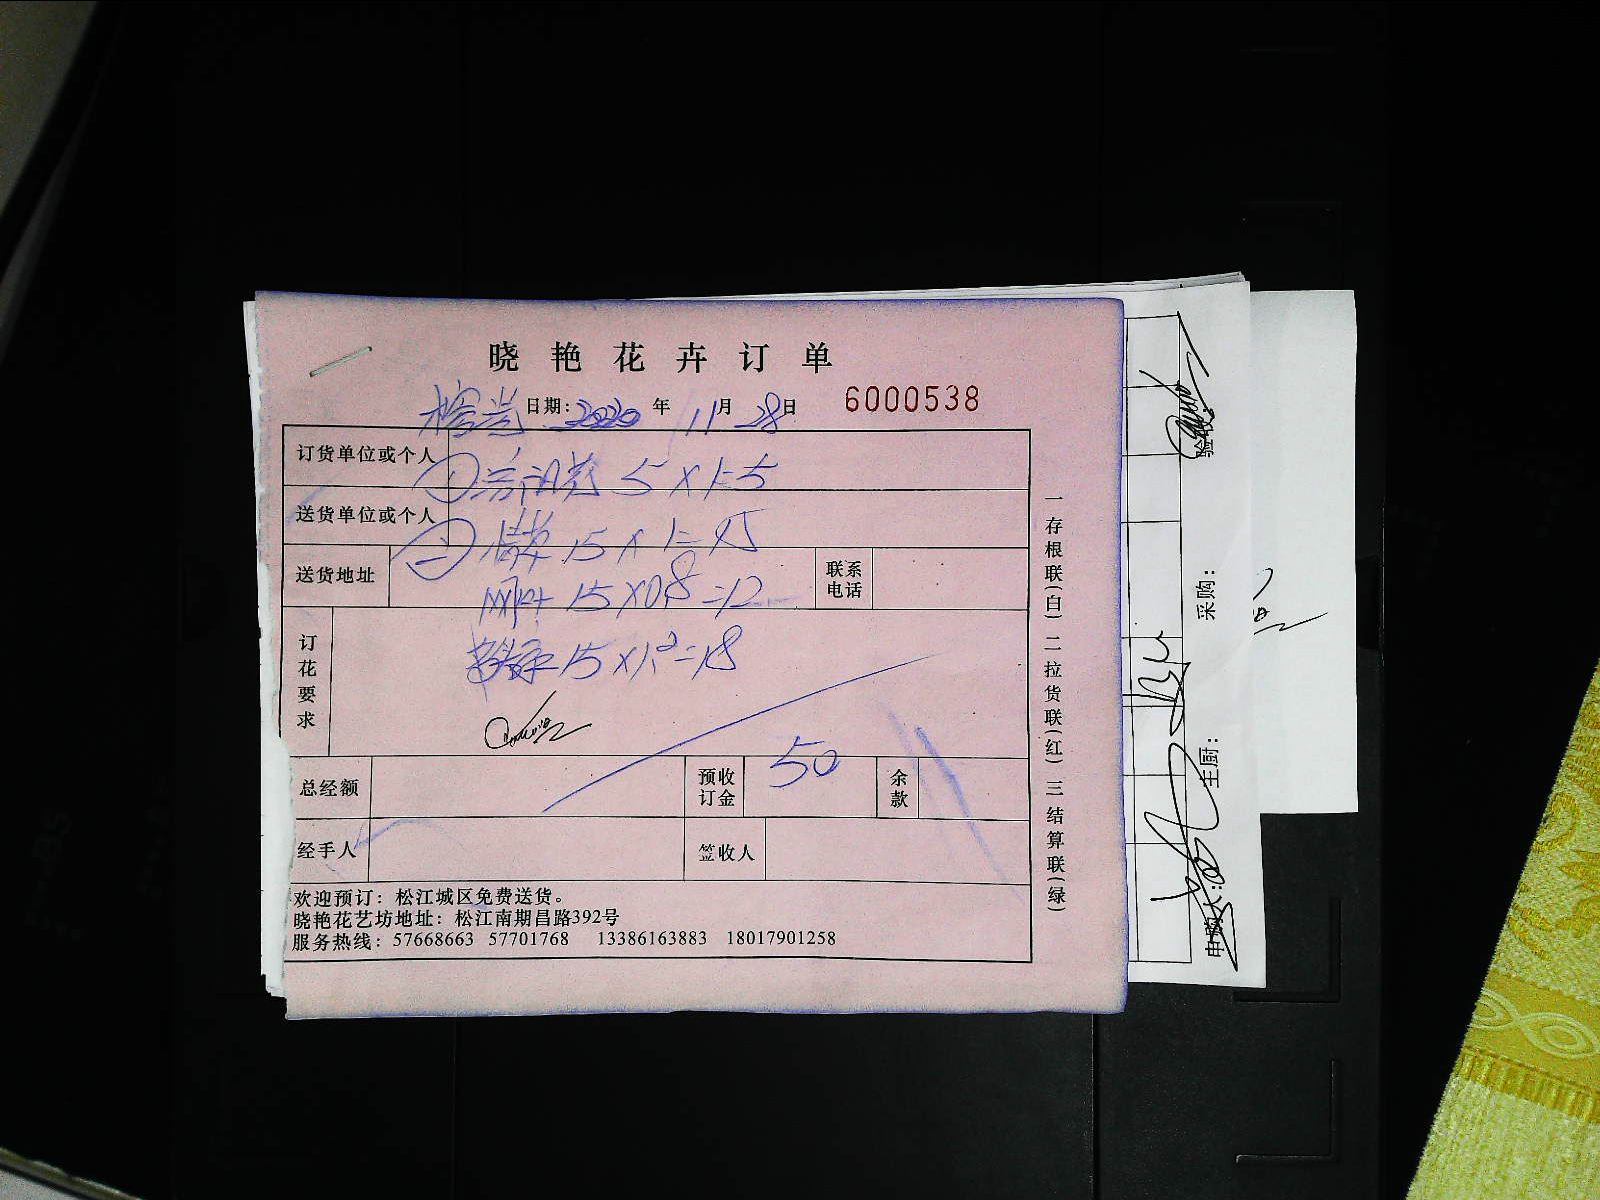 晓艳花卉订单
日期: 2020 年 11 月 28 日 6000538
订货单位或个人 ① 5 X 1=5
送货单位或个人 ② 15 X 1=15
送货地址 网叶 15 X 0.8=12 联系电话
订花要求 15 X 1.2=18
总经额 预收订金 50 余款
经手人 签收人
欢迎预订: 松江城区免费送货。
晓艳花艺坊地址: 松江南期昌路392号
服务热线: 57668663 57701768 13386163883 18017901258
一存根联(白) 二拉货联(红) 三结算联(绿)
验收:
采购:
主厨: